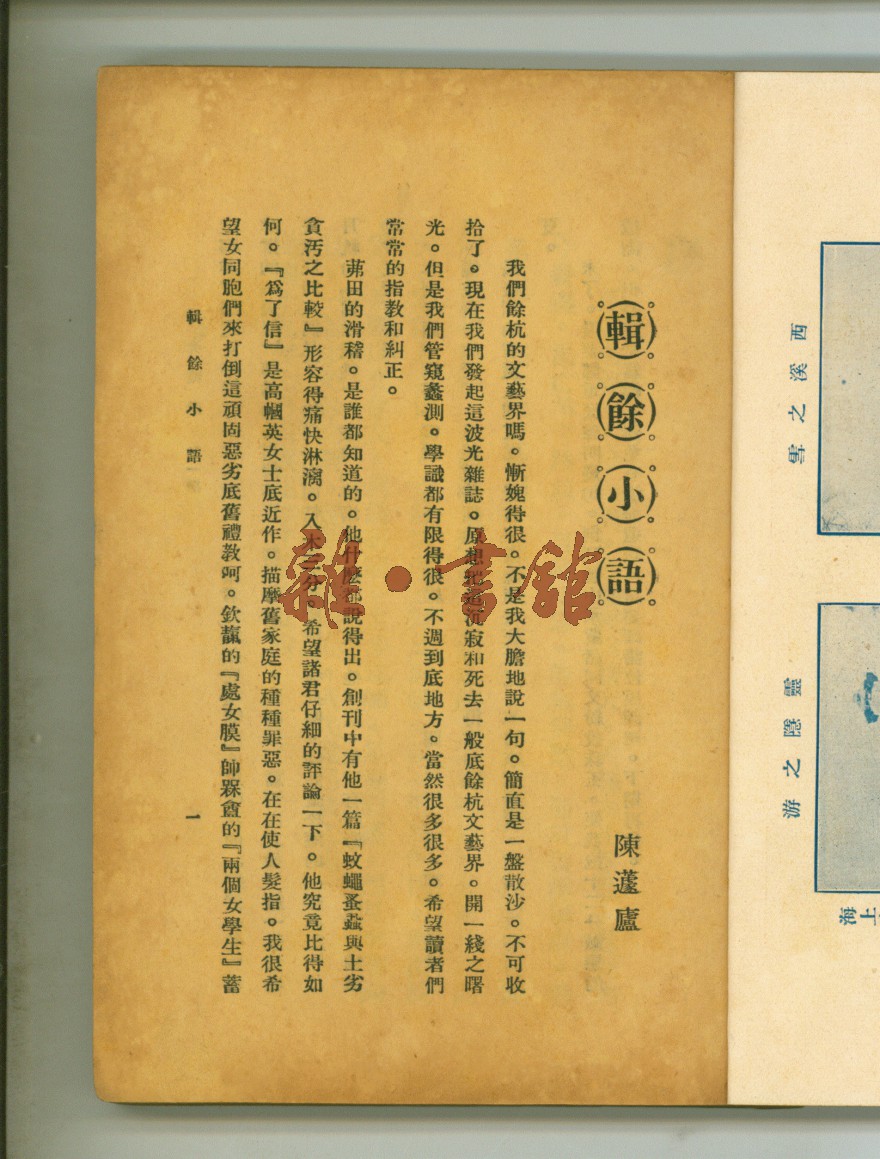 西溪之雪
靈隱之游
海上
輯餘小語
陳蘧廬
我們餘杭的文藝界嗎。慚媿得很。不是我大膽地說一句。簡直是一盤散沙。不可收
拾了。現在我們發起這波光雜誌。原想把這沉寂和死去一般底餘杭文藝界。開一綫之曙
光。但是我們管窺蠡測。學識都有限得很。不週到底地方。當然很多很多。希望讀者們
常常的指教和糾正。
茀田的滑稽。是誰都知道的。他什麽都說得出。創刊中有他一篇『蚊蠅蚤蝨與土劣
貪汚之比較』形容得痛快淋漓。入木三分。希望諸君仔細的評論一下。他究竟比得如
何。『爲了信』是高幗英女士底近作。描摩舊家庭的種種罪惡。在在使人髮指。我很希
望女同胞們來打倒這頑固惡劣底舊禮教呵。欽的『處女膜』帥槑盦的『兩個女學生』蓄
輯餘小語
一
雜·書館